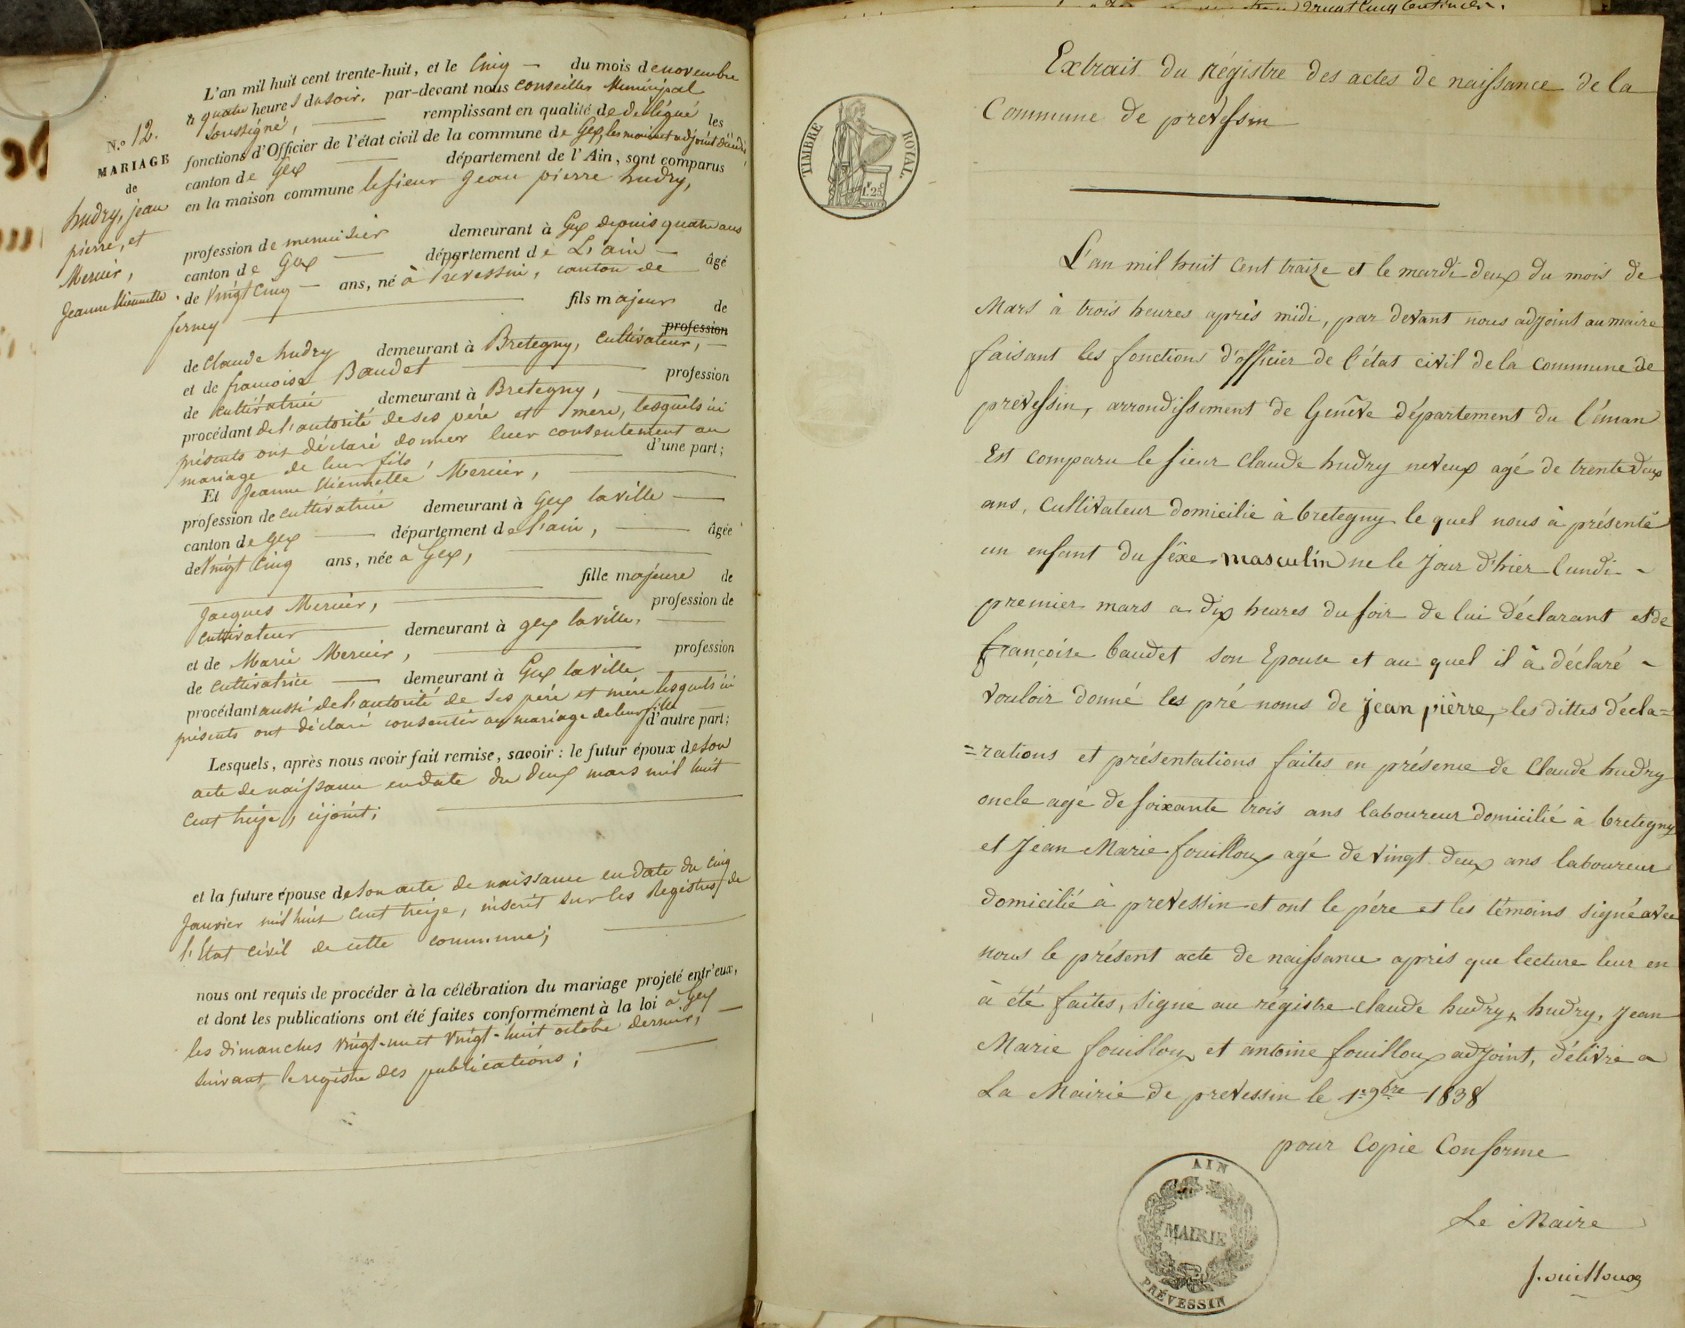 N.o 12.
MARIAGE
de
hudry, jean
pierre, et
Mercier,
Jeanne Etiennette.
L'an mil huit cent trente-huit, et le Cinq — du mois de novembre
à quatre heures du soir, par-devant nous conseiller Municipal
soussigné, — remplissant en qualité de délégué les
fonctions d'Officier de l'état civil de la commune de Gex, les maire et adjoint
canton de Gex — département de l'Ain, sont comparus
en la maison commune le sieur Jean pierre hudry,
profession de menuisier demeurant à Gex depuis quatre ans
canton de Gex — département de L'ain — âgé
de Vingt Cinq — ans, né à Prevessin, canton de
ferney — fils majeur de
profession
de Claude hudry demeurant à Bretegny, Cultivateur, —
et de françoise Baudet — profession
de Cultivatrice demeurant à Bretegny, —
procédant de l'autorité de ses père et mere, lesquels ici
présents ont déclaré donner leur consentement au
mariage de leur fils — d'une part;
Et Jeanne Etiennette Mercier, —
profession de cultivatrice demeurant à Gex la ville —
canton de Gex — département de L'ain, — âgée
de Vingt Cinq ans, née à Gex, —
fille majeure de
Jacques Mercier, — profession de
cultivateur — demeurant à Gex la ville, —
et de Marie Mercier, — profession
de cultivatrice — demeurant à Gex la ville —
procédant aussi de l'autorité de ses père et mère lesquels ici
présents ont déclaré consentir au mariage de leur fille d'autre part;
Lesquels, après nous avoir fait remise, savoir: le futur époux de son
acte de naissance en date du deux mars mil huit
cent treize, ci joint; —
et la future épouse de son acte de naissance en date du cinq
Janvier mil huit cent treize, inscrit sur les Registres de
l'Etat civil de cette commune; —
nous ont requis de procéder à la célébration du mariage projeté entr'eux,
et dont les publications ont été faites conformément à la loi à Gex
les dimanches vingt-un et vingt-huit octobre dernier, —
suivant le registre des publications; —
TIMBRE ROYAL.
1f.25
Extrait du régistre des actes de naissance de la
Commune de prevessin
L'an mil huit cent traize et le mardi deux du mois de
Mars à trois heures après midi, par devant nous adjoint au maire
faisant les fonctions d'officier de l'état civil de la commune de
prevessin, arrondissement de Genêve département du léman
Est comparu le sieur Claude hudry neveux agé de trente deux
ans, Cultivateur domicilié à bretegny le quel nous à présenté
un enfant du séxe masculin ne le jour d'hier lundi -
premier mars a dix heures du soir de lui déclarant et de
françoise baudet son Epouse et au quel il à déclaré -
vouloir donné les pré noms de jean pièrre, les dittes décla=
=rations et présentations faites en présence de Claude hudry
oncle agé de soixante trois ans laboureur domicilié à bretegny
et Jean Marie fouilloux agé de vingt deux ans laboureur
domicilié à prevessin et ont le père et les témoins signé avec
nous le présent acte de naissance après que lecture leur en
à été faites, signe au régistre claude hudry, hudry, Jean
Marie fouilloux et antoine fouilloux adjoint, délivré a
La Mairie de prevessin le 1er 9bre 1838
pour Copie Conforme
Le Maire
fouilloux
AIN
MAIRIE
PRÉVESSIN